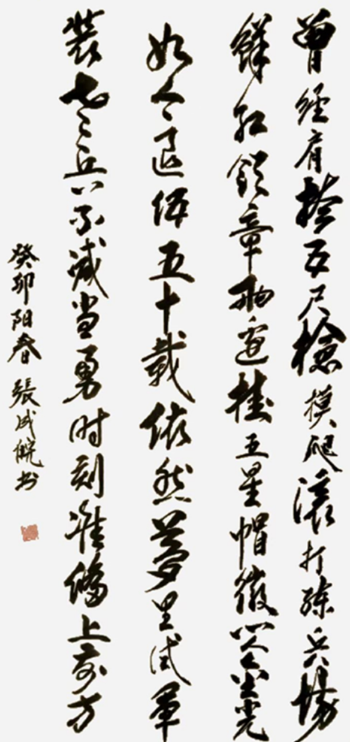 曾经肩挎五尺槍摸爬滚打练兵場
鲜红领章两边挂五星帽徽闪金光
如今退伍五十载依然夢里试军
装老兵不减当勇时刻准备上前方
癸卯阳春張成书